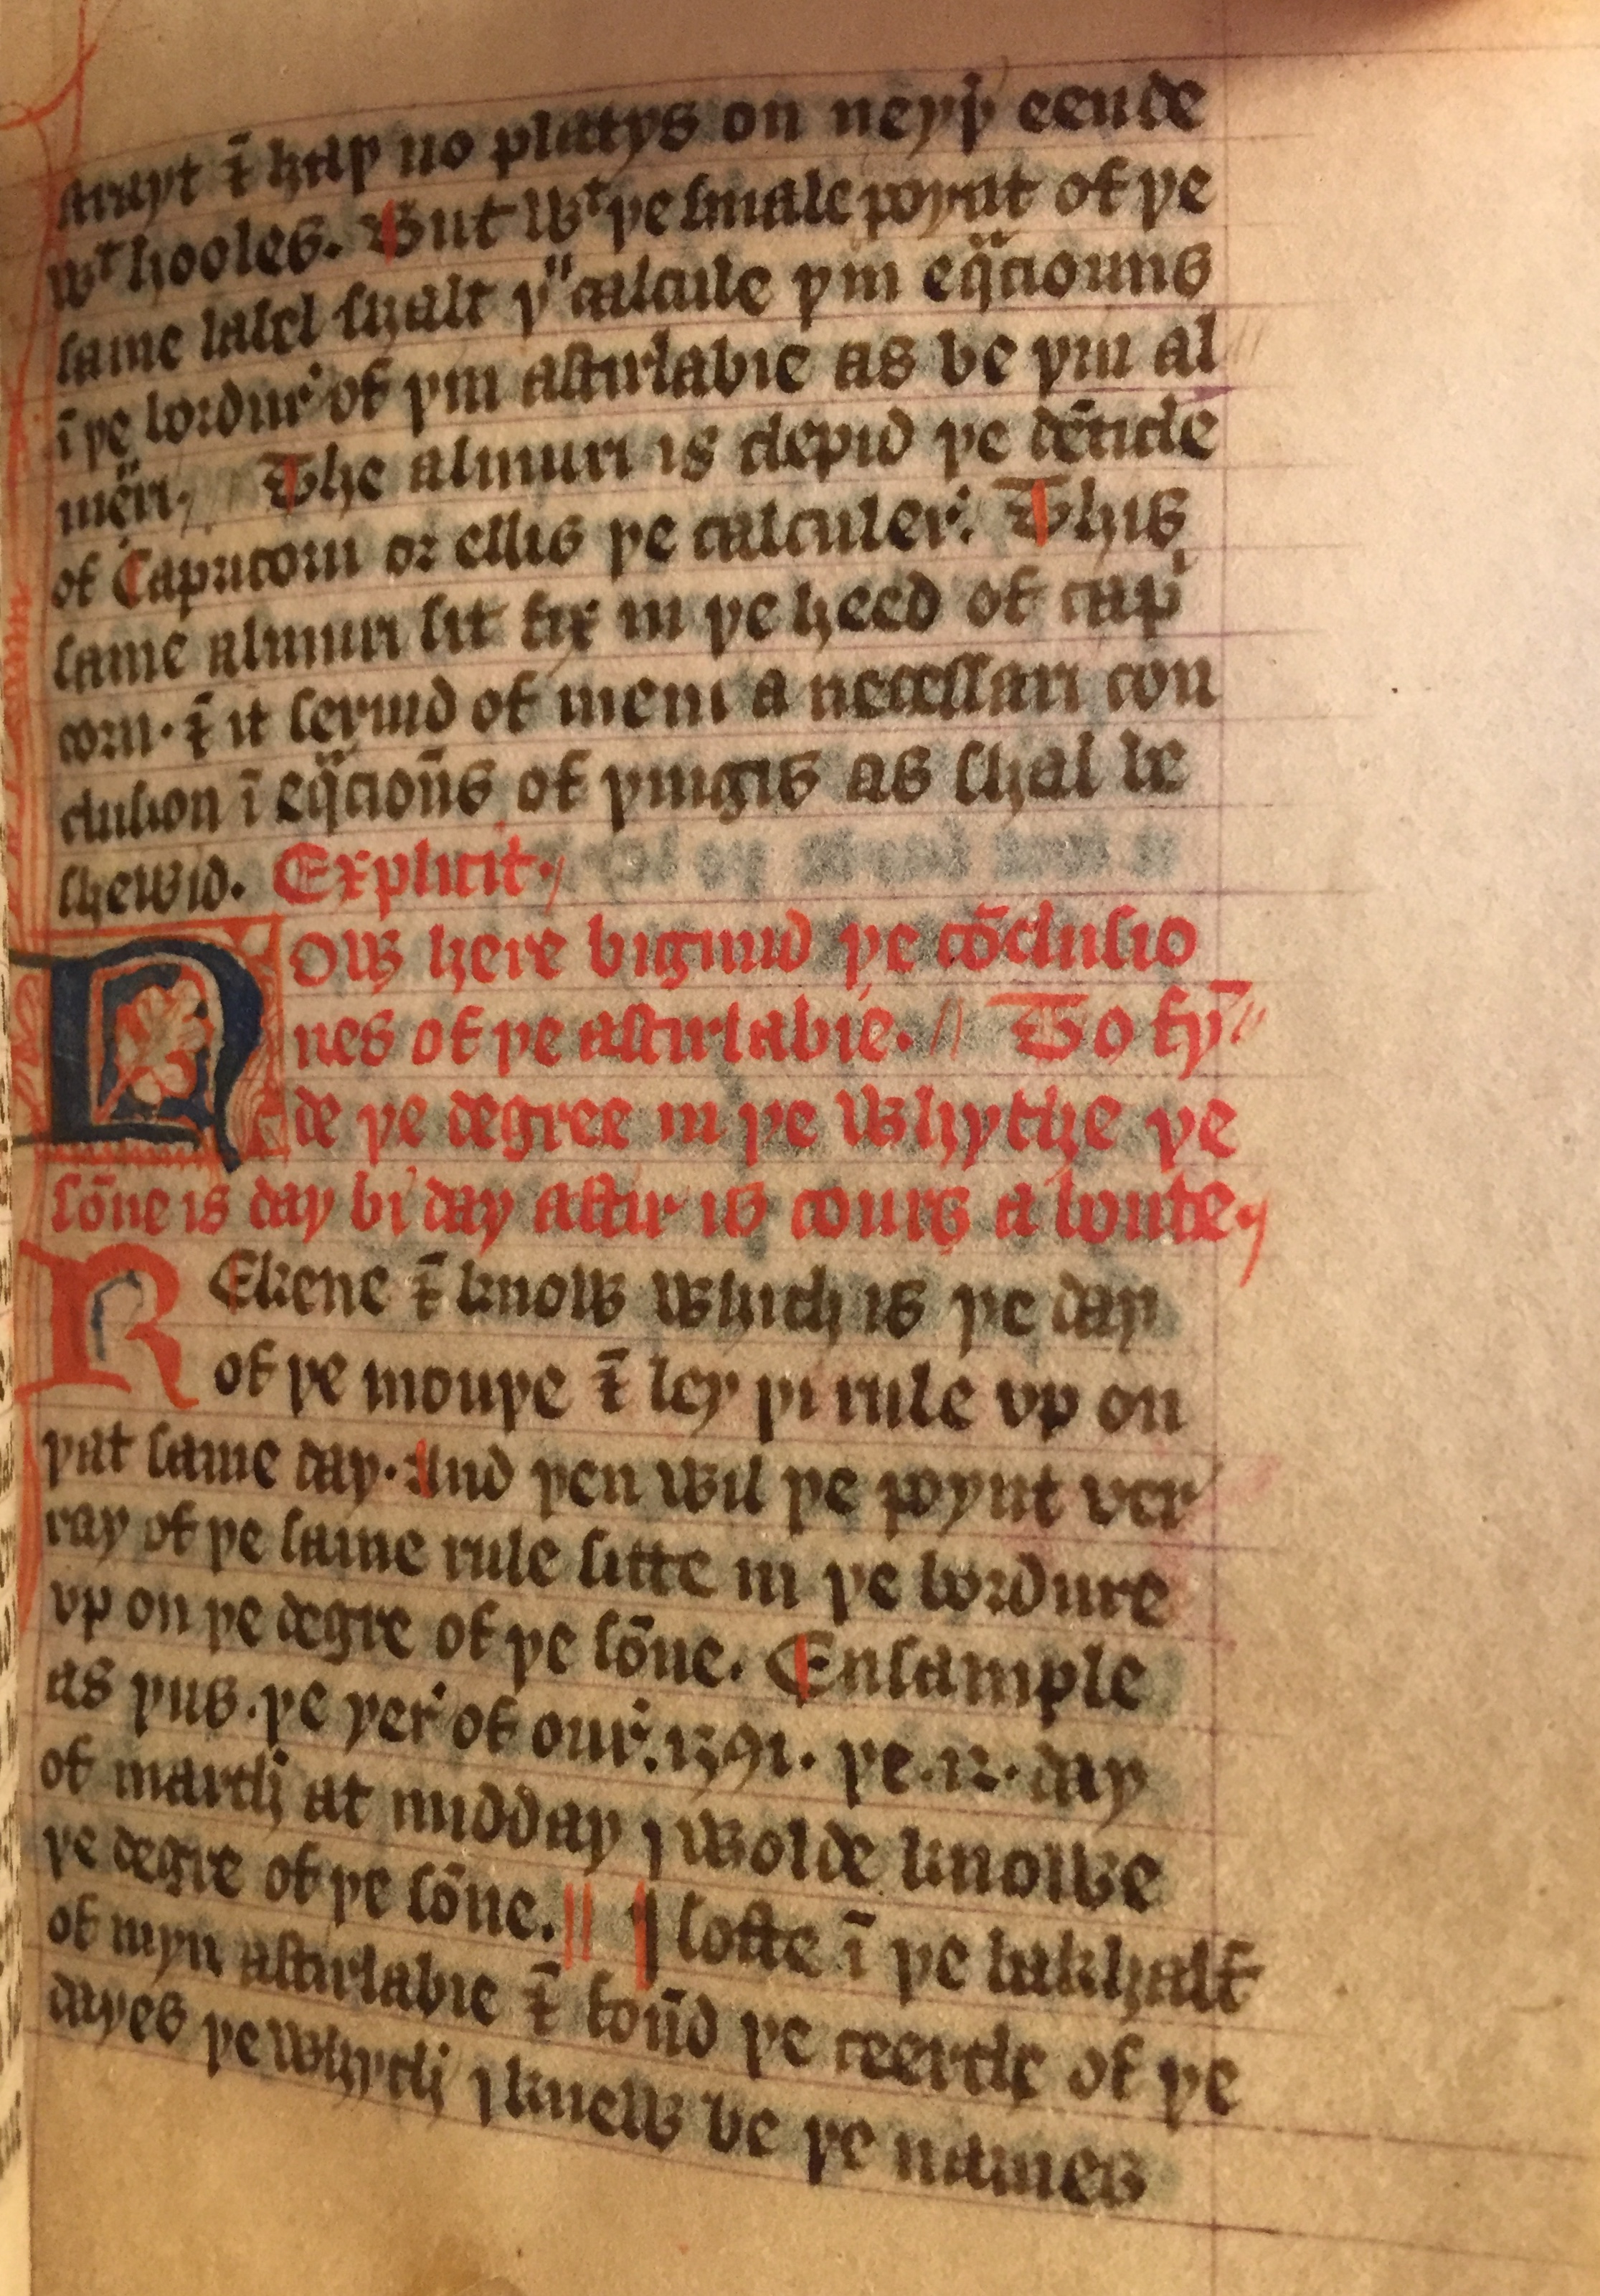 strayt ⁊̄ haþ no platys on neyþͥ eende
wᵗ hooles. But wᵗ þe smale poynt of þe
same label shalt þᵘ calcule þin eq̈ciouns
ī þe bordurͬ of þin asturlabie as be þin al
mẽri. // The almuri is clepid þe dēticle
of Capricorn or ellis þe calculerͬ. This
same almuri sit fix in þe heed of capͥ
corn. ⁊̄ it seruid of meni a necessari con
clusion ī eq̈cioūs of þingis as shal be
shewid. Explicit.
Now here biginnid þe cōclusio
nes of þe asturlabie. // To fȳ
de þe degree in þe whythe þe
sōne is day bi day aftur is cours a boute.
REkene ⁊̄ know which is þe day
of þe mouþe ⁊̄ ley þi rule vp on
þat same day. And þen wil þe poynt ver
ray of þe same rule sitte in þe bordure
vp on þe degre of þe sōne. Ensample
as þus. þe yerͬ of ourͬ. 1391. þe .12. day
of march at midday j wolde knowe
þe degre of þe sōne. // j softe ī þe bakhalf
of myn asturlabie ⁊̄ foūd þe ceercle of þe
dayes þe whych j knew be þe names